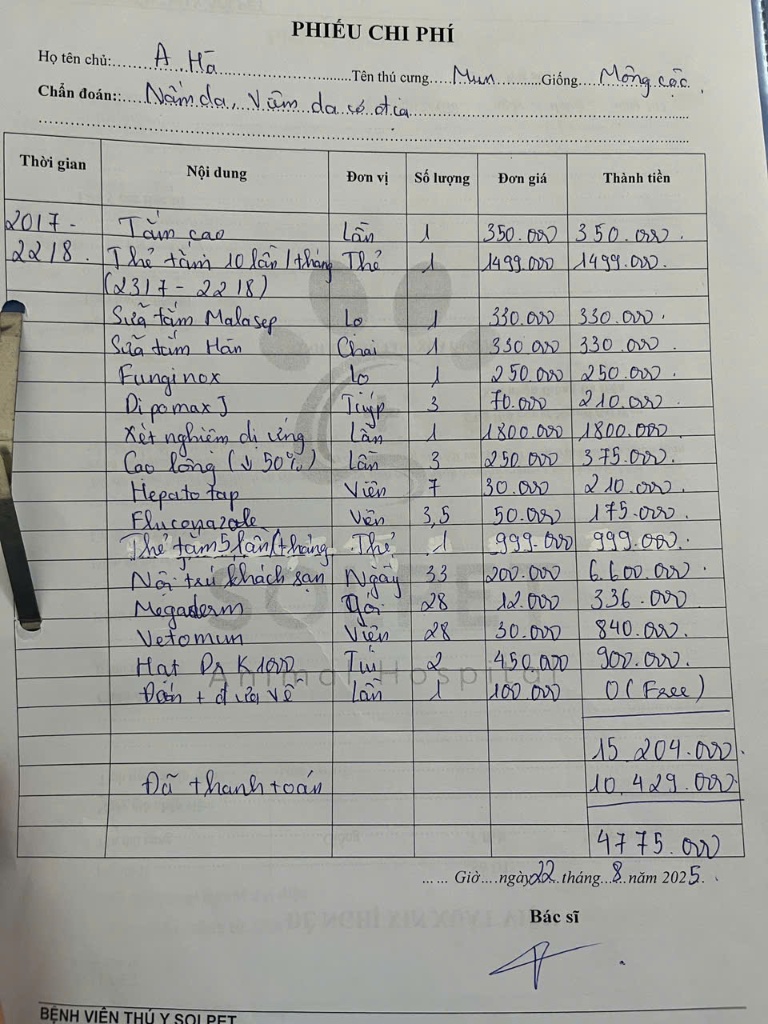 PHIẾU CHI PHÍ
Họ tên chủ: A Hà Tên thú cưng Mun Giống Mông cộc
Chẩn đoán: Nấm da, Viêm da cơ địa
Thời gian Nội dung Đơn vị Số lượng Đơn giá Thành tiền
20/7 - Tắm cao Lần 1 350.000 350.000
22/8 Thẻ tắm 10 lần/tháng Thẻ 1 1499.000 1499.000
(23/7 - 22/8)
Sữa tắm Malasep Lọ 1 330.000 330.000
Sữa tắm Hàn Chai 1 330.000 330.000
Funginox lọ 1 250.000 250.000
Dipomax J Tuýp 3 70.000 210.000
Xét nghiệm dị ứng Lần 1 1800.000 1800.000
Cạo lông (↓ 50%) Lần 3 250.000 375.000
Hepato tap Viên 7 30.000 210.000
Fluconazole Viên 3,5 50.000 175.000
Thẻ tắm 5 lần/tháng Thẻ 1 999.000 999.000
Nội trú khách sạn Ngày 33 200.000 6.600.000
Megaderm Gói 28 12.000 336.000
Vetomun Viên 28 30.000 840.000
Hạt Dr K1000 Túi 2 450.000 900.000
Đón + đưa về Lần 1 100.000 0 (Free)
15 204.000
Đã thanh toán 10.429.000
4775.000
Giờ ngày 22 tháng 8 năm 2025
Bác sĩ
SOI PET
Animal Hospital
BỆNH VIỆN THÚ Y SOI PET